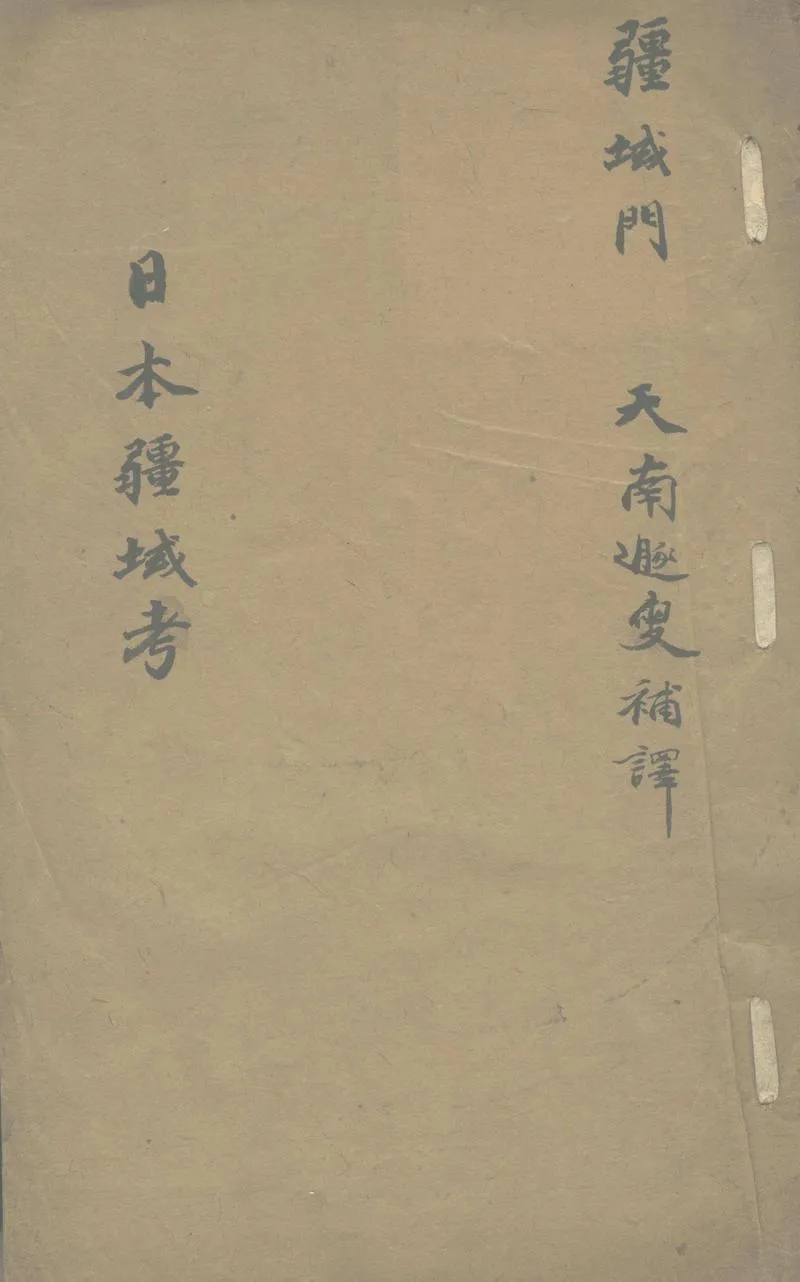 疆域門
天南遯叟補譯
日本疆域考